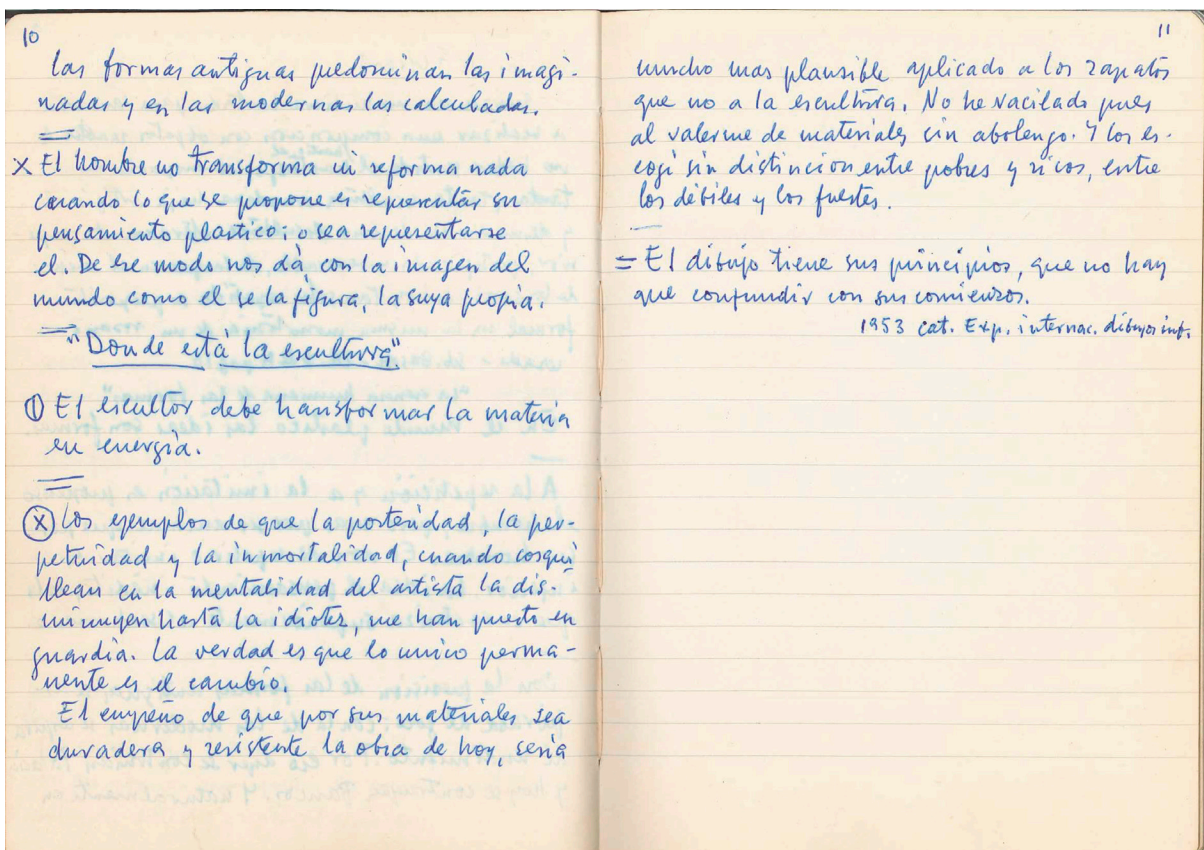 10
las formas antiguas predominan las imagi-
nadas y en las modernas las calculadas.
X El hombre no transforma ni reforma nada
cuando lo que se propone es representar su
pensamiento plastico, o sea representarse
el. De ese modo nos dà con la imagen del
mundo como el se la figura, la suya propia.
"Donde está la escultura"
① El escultor debe transformar la materia
en energia.
Ⓧ Los ejemplos de que la posteridad, la per-
petuidad y la inmortalidad, cuando cosqui
llean en la mentalidad del artista la dis-
minuyen hasta la idiotez, me han puesto en
guardia. La verdad es que lo unico perma-
nente es el cambio.
El empeño de que por sus materiales sea
duradera y resistente la obra de hoy, seria
11
mucho mas plausible aplicado a los zapatos
que no a la escultura. No he vacilado pues
al valerme de materiales sin abolengo. Y los es-
cogi sin distincion entre pobres y ricos, entre
los débiles y los fuertes.
= El dibujo tiene sus principios, que no hay
que confundir con sus comienzos.
1953 cat. Exp. internac. dibujos inf.